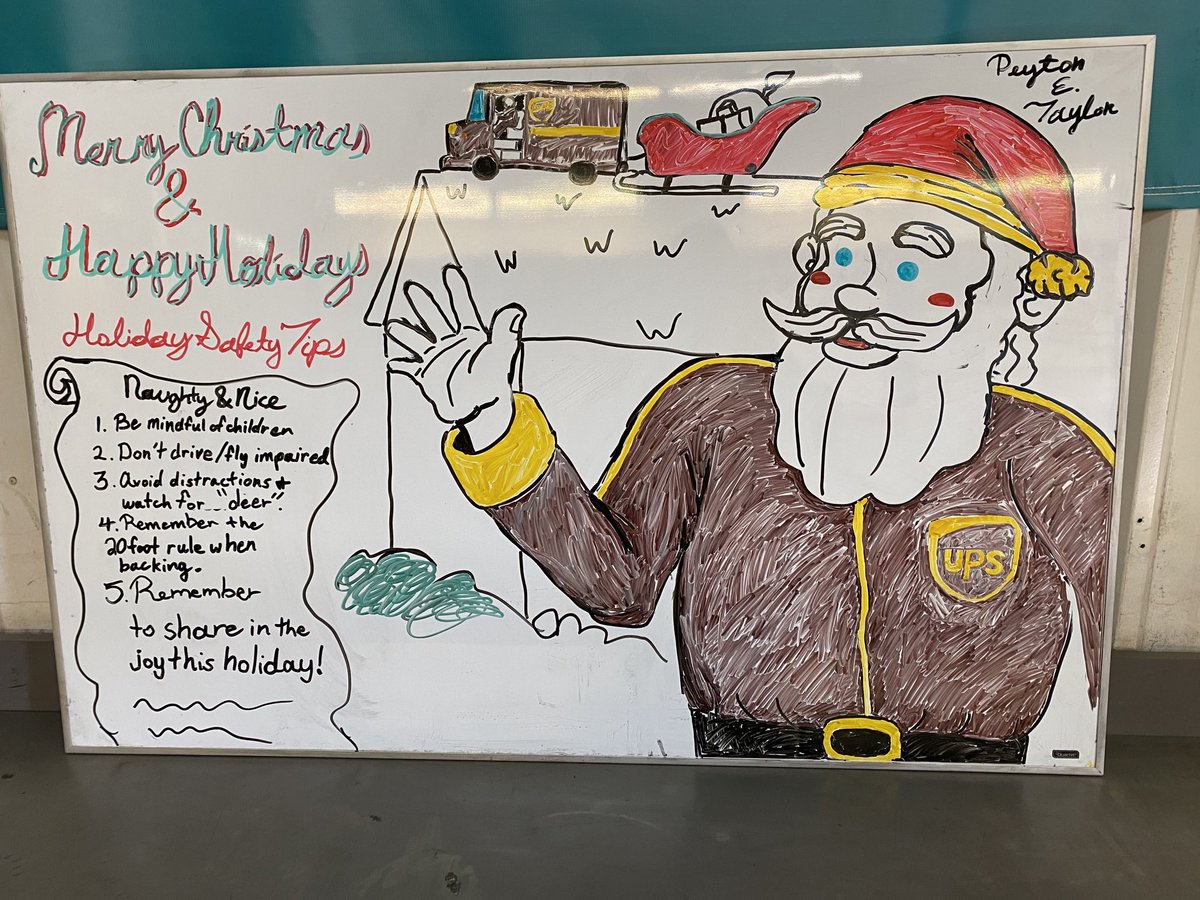 Merry Christmas
&
Happy Holidays
Holiday Safety Tips
Naughty & Nice
1. Be mindful of children
2. Don't drive/fly impaired
3. Avoid distractions +
watch for... "deer".
4. Remember the
20 foot rule when
backing.
5. Remember
to share in the
joy this holiday!
Peyton
E.
Taylor
ups
Quartet